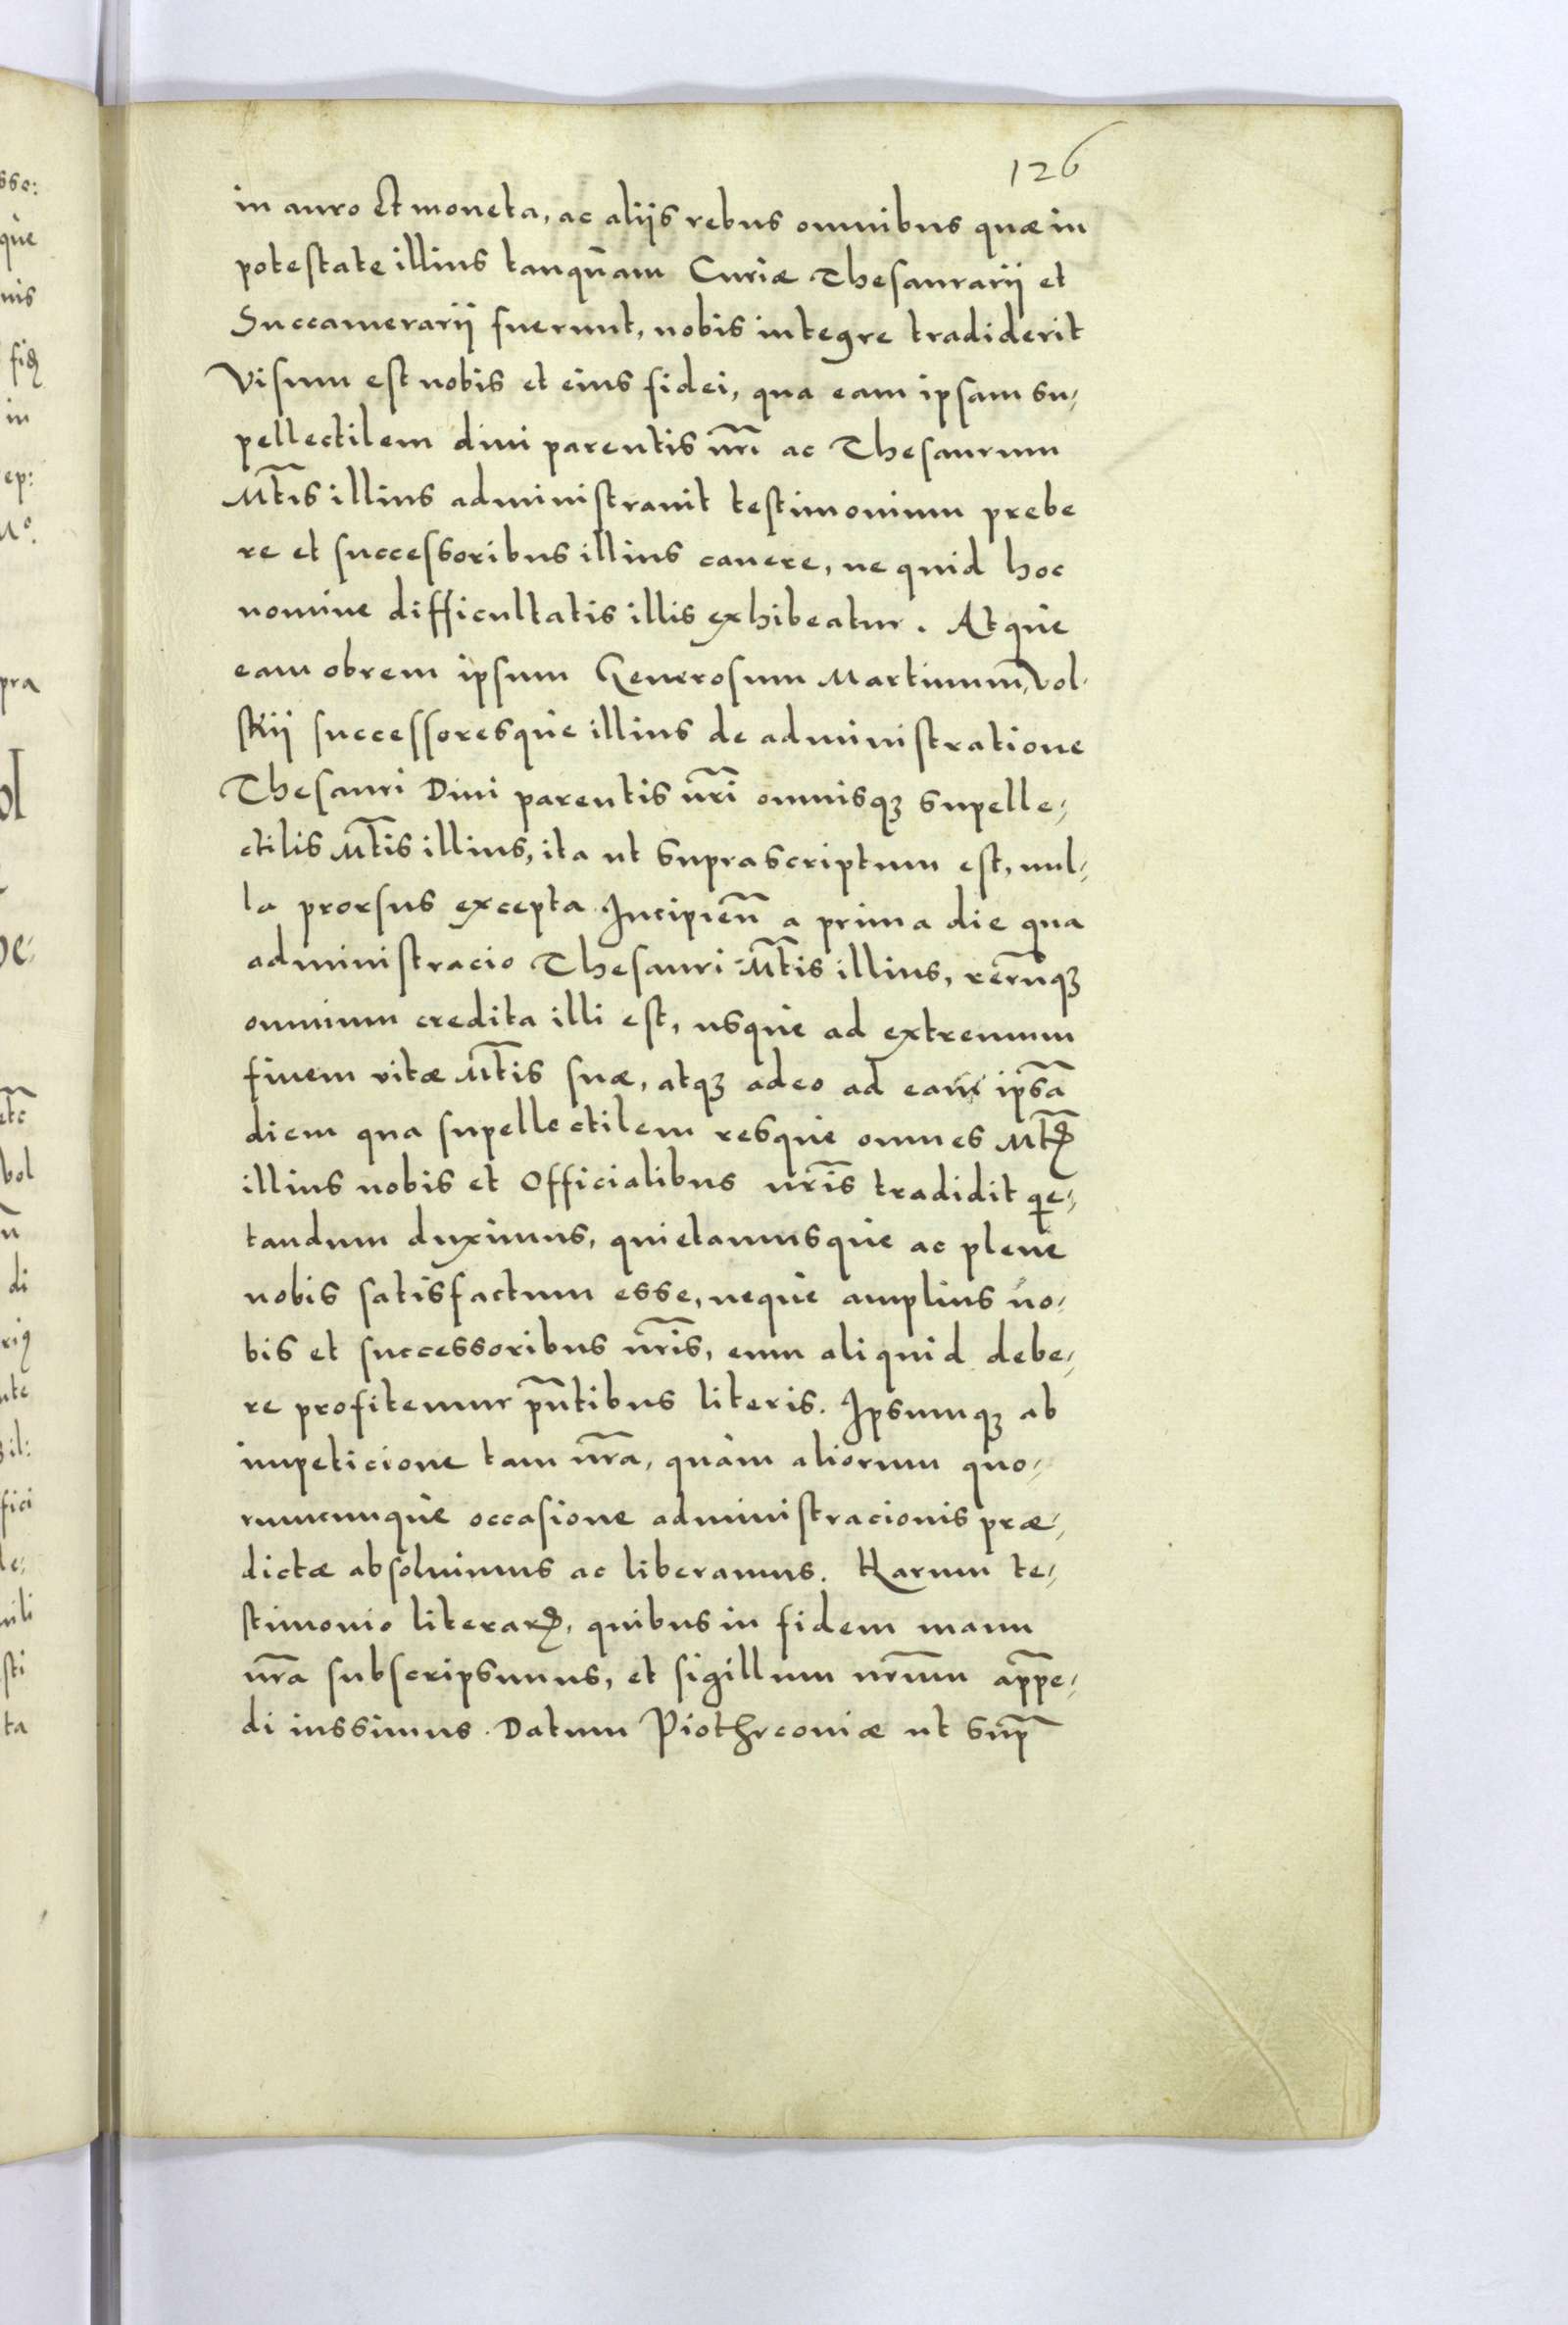 126
in auro Et moneta, ac aliis rebus omnibus quæ in
potestate illius tanqȗam Curiæ Thesaurarij et
Succamerarij fuerunt, nobis integre tradiderit
Visum est nobis et eius fidei, qua eam ipsam su-
pellectilem diui parentis nr̃i ac Thesaurum
Mt̃is illius administrauit testimonium prebe
re et successoribus illius cauere, ne quid hoc
nomine difficultatis illis exhibeatur. Atque
eam obrem ipsum Generosum Martinum, Vol-
skij successoresque illius de administratione
Thesauri Diui parentis nr̃i omnisqꝫ supelle-
ctilis Mt̃is illius, ita ut suprascriptum est, nul-
la prorsus excepta. Incipien̄ a prima die qua
administracio Thesauri Mt̃is illius, rerūqꝫ
omnium credita illi est, usque ad extremum
finem vitæ Mt̃is suæ, atqꝫ adeo ad eam ipsã
diem qua supellectilem resque omnes Mtꝭ
illius nobis et Officialibus nr̃is tradidit qe-
tandum duximus, quietamusque ac plene
nobis satisfactum esse, neque amplius no-
bis et successoribus nr̃is, eum aliquid debe-
re profitemur pñtibus literis. Ipsumqꝫ ab
impeticione tam nr̃a, quàm aliorum quo-
rumcunque occasione administracionis præ-
dictæ absoluimus ac liberamus. Harum te-
stimonio literarꝝ, quibus in fidem manu
nr̃a subscripsimus, et sigillum nr̃um appe-
di iussimus. Datum Piothrcoviæ ut sup̃